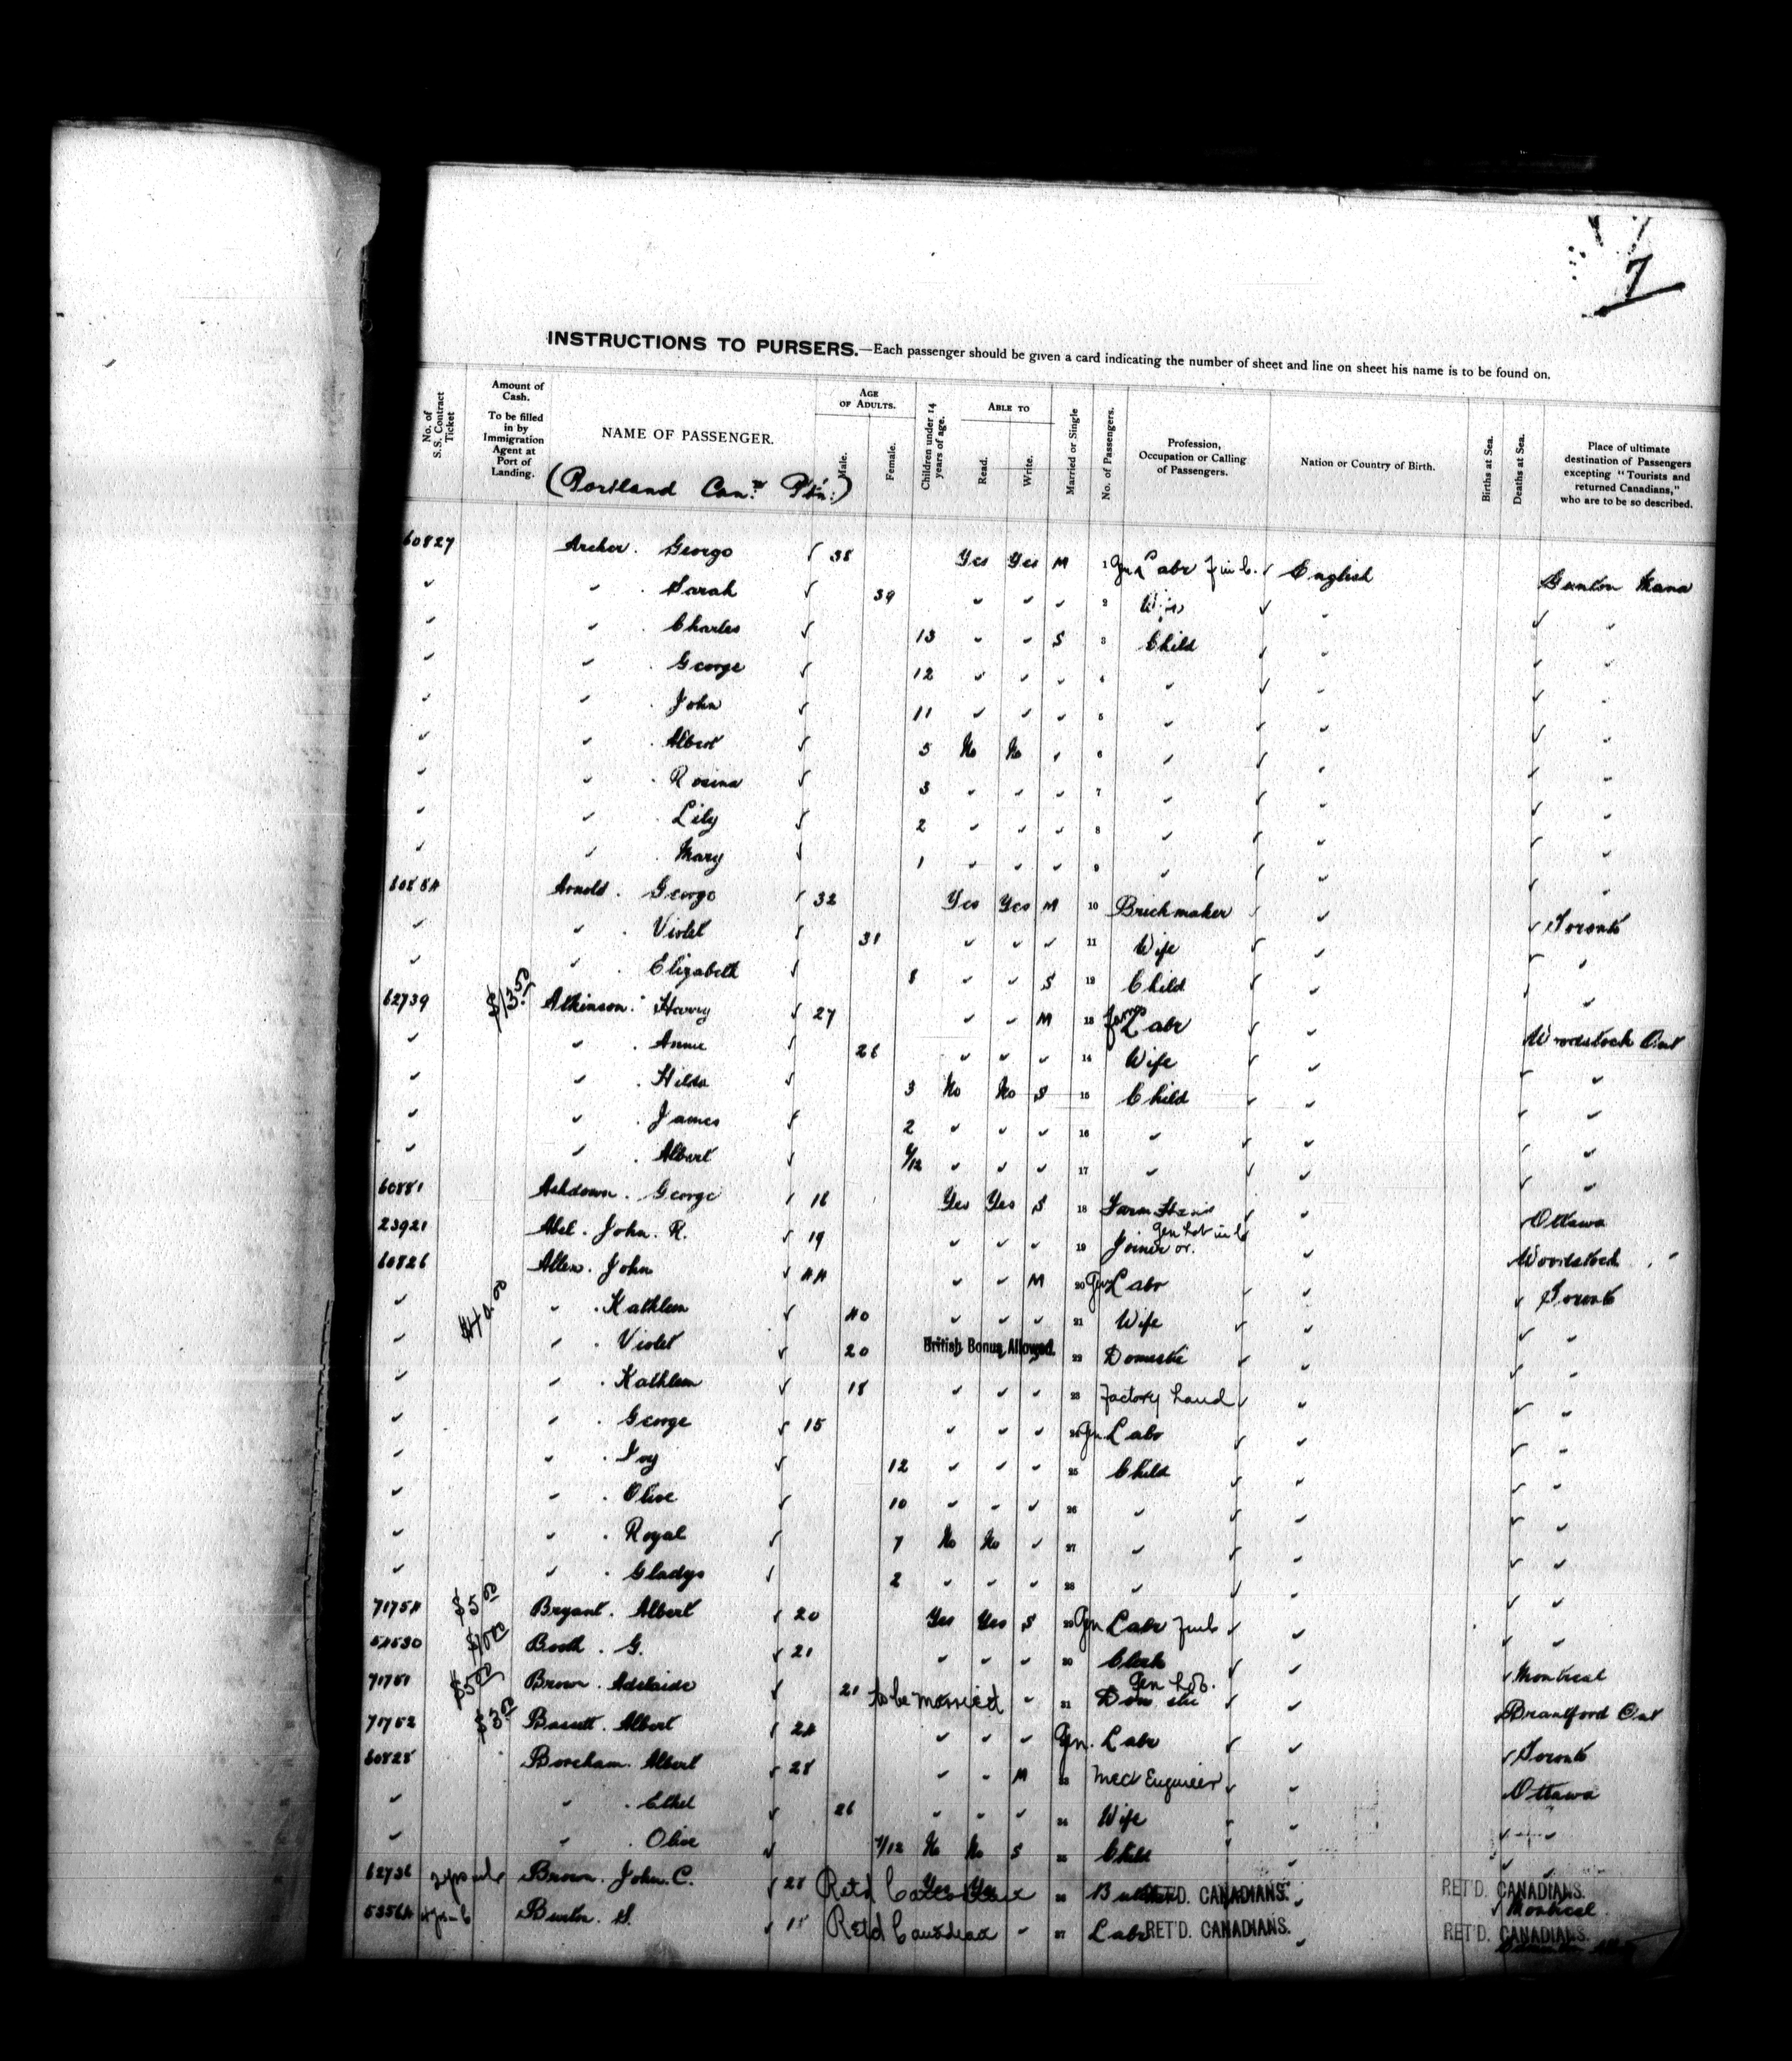 7
INSTRUCTIONS TO PURSERS.—Each passenger should be given a card indicating the number of sheet and line on sheet his name is to be found on.
No. of S.S. Contract Ticket
Amount of Cash. To be filled in by Immigration Agent at Port of Landing.
NAME OF PASSENGER.
AGE OF ADULTS.
Male.
Female.
Children under 14 years of age.
ABLE TO
Read.
Write.
Married or Single
No. of Passengers.
Profession, Occupation or Calling of Passengers.
Nation or Country of Birth.
Births at Sea.
Deaths at Sea.
Place of ultimate destination of Passengers excepting "Tourists and returned Canadians," who are to be so described.
(Portland Can.
60827 Archer. George √ 38 Yes Yes M 1 Gen Labr √ English
" " Sarah √ 39 " " " 2 Wife √ " √ "
" " Charles √ 13 " " S 3 Child √ " √ "
" " George √ 12 " " " 4 " √ " √ "
" " John √ 11 " " " 5 " √ " √ "
" " Albert √ 5 No No " 6 " √ " √ "
" " Rosina √ 3 " " " 7 " √ " √ "
" " Lily √ 2 " " " 8 " √ " √ "
" " Mary √ 1 " " " 9 " √ " √ "
60854 Arnold. George √ 32 Yes Yes M 10 Brickmaker √ " √ Toronto
" " Violet √ 31 " " " 11 Wife √ " √ "
" " Elizabeth √ 8 " " S 12 Child √ " √ "
62739 $13.50 Atkinson. Harry √ 27 " " M 13 Farm Labr √ " Woodstock Ont
" " Annie √ 26 " " " 14 Wife √ " √ "
" " Hilda √ 3 No No S 15 Child √ " √ "
" " James √ 2 " " " 16 " √ " √ "
" " Albert √ " " " 17 " √ " √ "
60881 Ashdown. George √ 16 Yes Yes S 18 Farm √ " Ottawa
23921 Abel. John. R. √ 19 " " " 19 Joiner or. √ " Woodstock "
60826 Allen. John √ 44 " " M 20 Gen Labr √ " √ Toronto
" $40.00 " Kathleen √ 40 " " " 21 Wife √ " √ "
" " Violet √ 20 British Bonus Allowed. 22 Domestic √ " √ "
" " Kathleen √ 18 " " " 23 Factory hand √ " √ "
" " George √ 15 " " " 24 Gen. Labr √ " √ "
" " Ivy √ 12 " " " 25 Child √ " √ "
" " Olive √ 10 " " " 26 " √ " √ "
" " Royal √ 7 No No " 27 " √ " √ "
" " Gladys √ 2 " " " 28 " √ " √ "
71754 $5.00 Bryant. Albert √ 20 Yes Yes S 29 Gen Labr √ " √ "
54530 Booth. G. √ 21 " " " 30 Clerk √ " √ Montreal
71751 $5.00 Brown. Adelaide √ 21 to be married " 31 Domestic √ " Brantford Ont
71752 Bassett. Albert √ 24 " " " Gen. Labr √ " √ Toronto
60828 Boreham. Albert √ 28 " " M 33 Mec Engineer √ " Ottawa
" " Ethel √ 26 " " " 34 Wife " " √ "
" " Olive √ No No S 35 Child " " √ "
62736 Brown. John. C. √ 28 Ret'd Yes Yes 36 RET'D. CANADIANS. " RET'D. CANADIANS. √ Montreal
Burton. S. √ 18 Ret'd Canadian " 37 Labr RET'D. CANADIANS. " RET'D. CANADIANS.